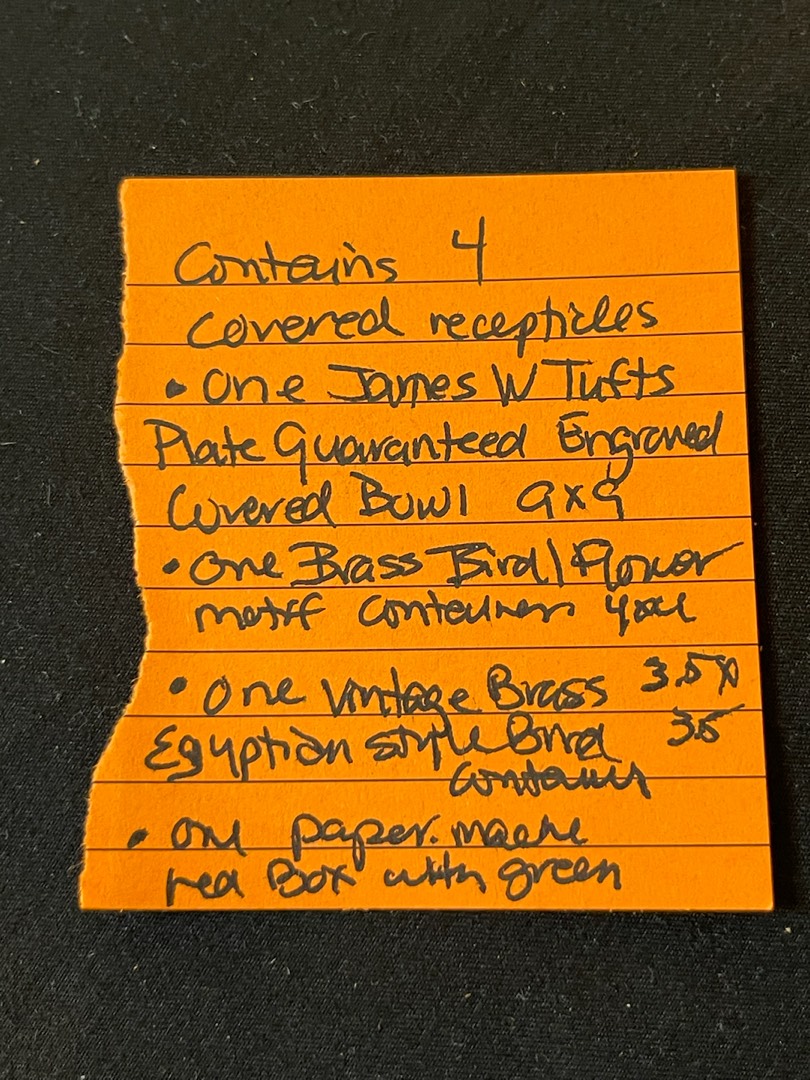 Contains 4
Covered recepticles
• One James W Tufts
Plate Guaranteed Engraved
Covered Bowl 9x9
• One Brass Bird/Flower
motif container 4x4
• One Vintage Brass 3.5x
Egyptian style Bird 3.5
container
• One paper. mache
red Box with green